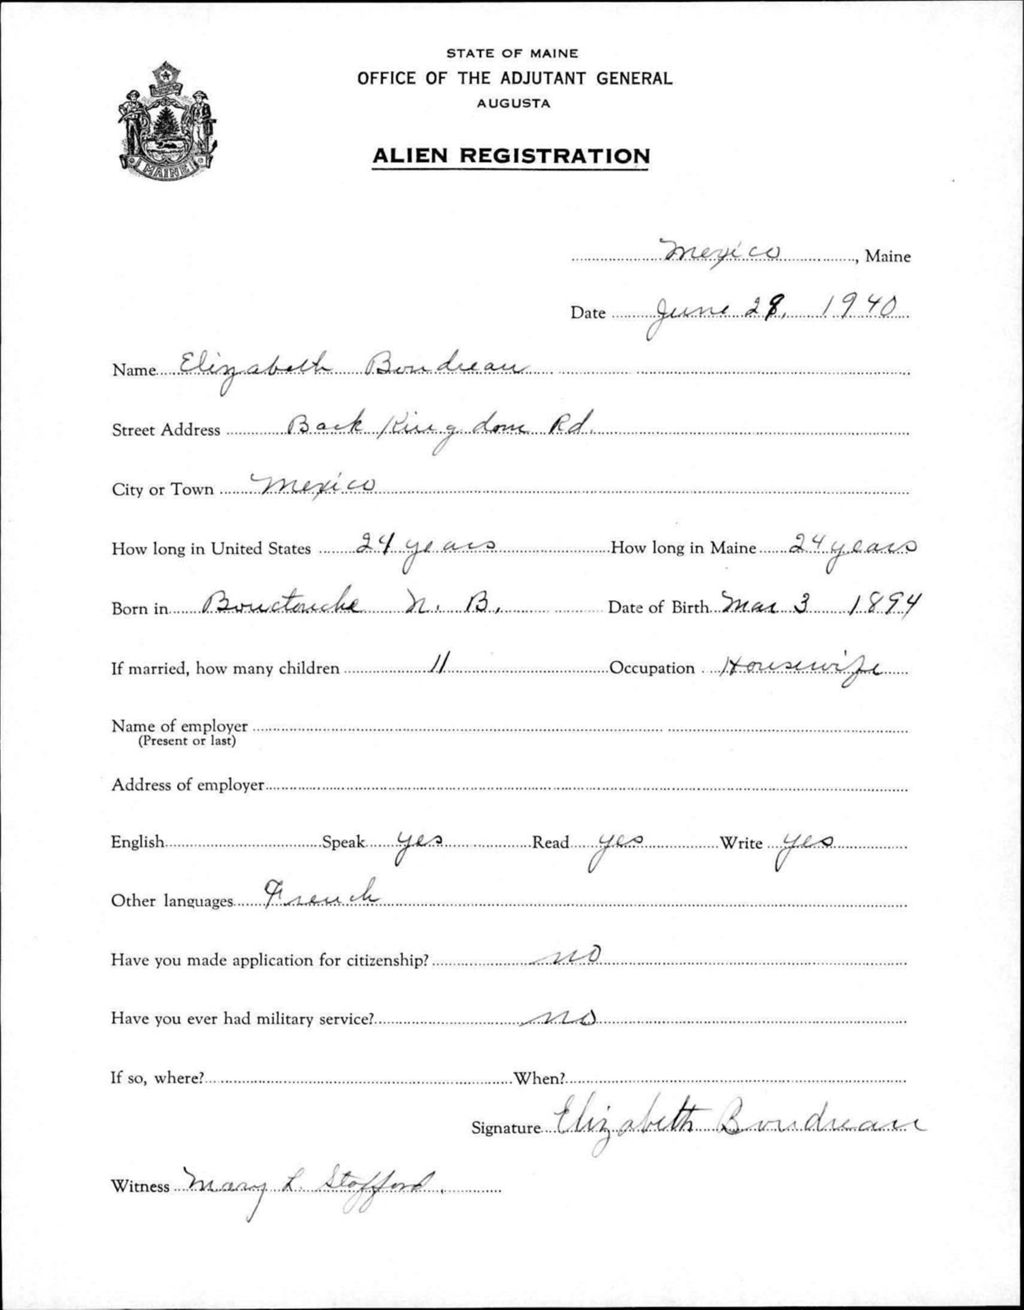 STATE OF MAINE
OFFICE OF THE ADJUTANT GENERAL
AUGUSTA
ALIEN REGISTRATION
MAINE
Mexico, Maine
Date June 28, 1940
Name Elizabeth Boudreau
Street Address Back Kingdom Rd.
City or Town Mexico
How long in United States 24 years How long in Maine 24 years
Born in Bouctouche N. B. Date of Birth Mar 3 1894
If married, how many children 11 Occupation Housewife
Name of employer
(Present or last)
Address of employer
English Speak yes Read yes Write yes
Other languages French
Have you made application for citizenship? no
Have you ever had military service? no
If so, where? When?
Signature Elizabeth Boudreau
Witness Mary L. Stafford.